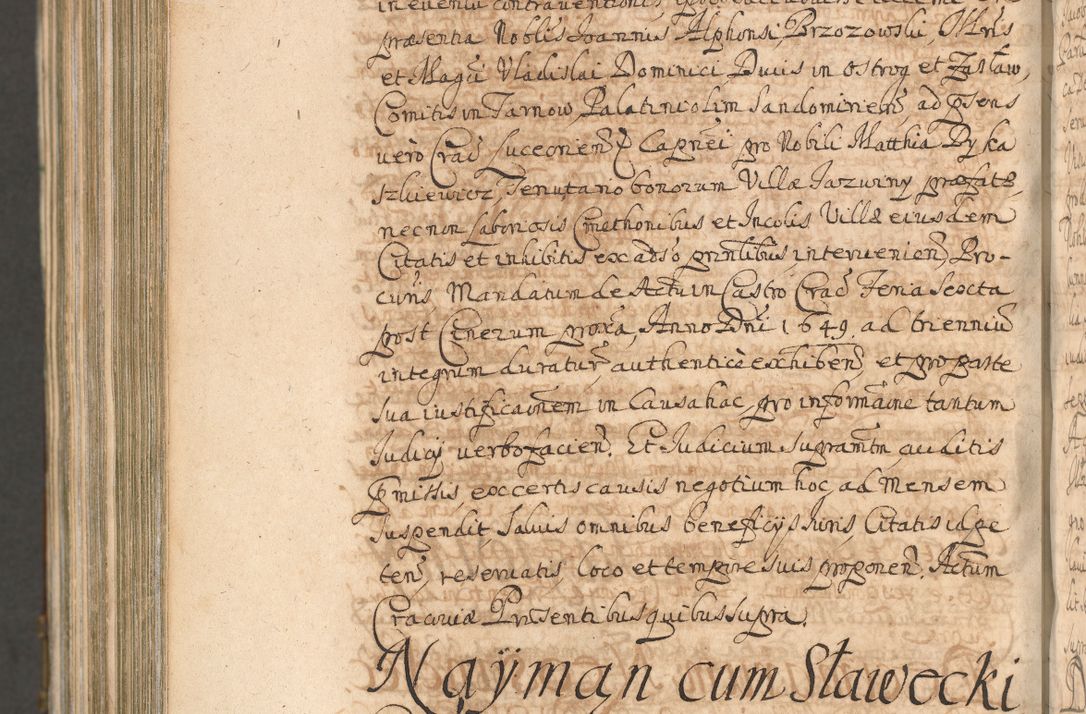 in eventu contraventionis
præsentia Noblis Joannis Alphonsi Brzozowski, Illris
et Magci Vladislai Dominici Ducis in Ostrog et Zasław,
Comitis in Tarnow, Palatini olim Sandomirien, ad psens
vero Crac Succecrien Capnei pro Nobili Matthia Dyka
szkiewicz, Tenutario bonorum Villæ Jazwiny præfatæ,
necnon Laboriosis Cmethonibus et Incolis Villæ eiusdem
Citatis et inhibitis ex adso prinlibus, intervenien, Pro-
curis, Mandatum de Actu in Castro Crac Feria Sexta
post Cinerum proxa, Anno Dni 1649, ad triennium
integrum duratur, authentice exhiben, et pro parte
sua iustificaonem in Causa hac, pro informaone tantum
Judicij verbo facien. Et Judicium supramtm auditis
pmissis, ex certis causis negotium hoc, ad Mensem
suspendit, Salvis omnibus beneficijs Juris, Citatis id pe
ten, reservatis, loco et tempore suis proponen. Actum
Cracoviæ Præsentibus quibus supra.
Naÿman cum Sławecki